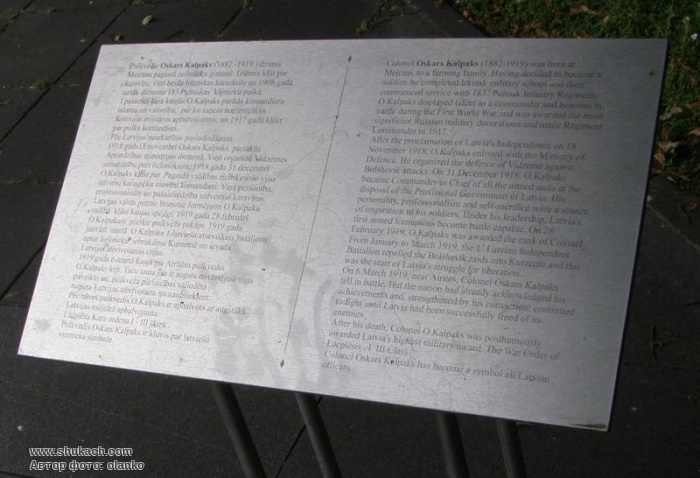 Pulkvedis Oskars Kalpaks (1882-1919) dzimis
Meirānu pagastā zemnieku ģimenē. Izlēmis kļūt par
karavīru, viņš beidz Irkutskas karaskolu un 1908. gadā
sāk dienestu 183. Pultuskas kājnieku pulkā.
I pasaules kara kaujās O.Kalpaks parāda komandiera
talantu un varonību, par ko saņem nozīmīgākos
Krievijas militāros apbalvojumus; un 1917. gadā kļūst
par pulka komandieri.
Pēc Latvijas neatkarības pasludināšanas
1918. gada 18. novembrī Oskars Kalpaks piesakās
Apsardzības ministrijas dienestā. Viņš organizē Vidzemes
aizsardzību pret lieliniekiem. 1918. gada 31. decembrī
O.Kalpaks kļūst par Pagaidu valdības rīcībā esošo visu
latviešu karaspēka vienību komandieri. Viņa personība,
profesionālisms un pašaizliedzība iedvesmo karavīrus.
Latvijas valsts pirmie bruņotie formējumi O.Kalpaka
vadībā kļūst kaujas spējīgi. 1919. gada 28. februārī
O.Kalpakam piešķir pulkveža pakāpi. 1919. gada
janvārī - martā O.Kalpaka I latviešu atsevišķais bataljons
aptur lielinieku uzbrukumu Kurzemē un ievada
Latvijas atbrīvošanas cīņas.
1919. gada 6. martā kaujā pie Airītēm pulkvedis
O.Kalpaks krīt. Taču tauta jau ir
paveikto un, pulkveža pārliecības stiprināta
turpina Latvijas atbrīvošanu no naidniekiem.
Pēc nāves pulkvedis O.Kalpaks ir apbalvots ar augstāko
Latvijas militāro apbalvojumu
Lāčplēša Kara ordeņa I - III šķiru.
Pulkvedis Oskars Kalpaks ir kļuvis par latviešu
virsnieku simbolu.
Colonel Oskars Kalpaks (1882-1919) was born at
Meirani, to a farming family. Having decided to become a
soldier, he completed Irkutsk military school and then
commenced service with 183rd Pultusk Infantry Regiment.
O.Kalpaks displayed talent as a commander and heroism in
battle during the First World War and was awarded the most
significant Russian military decorations and made Regiment
Commander in 1917.
After the proclamation of Latvia's Independence on 18
November 1918, O.Kalpaks enlisted with the Ministry of
Defence. He organized the defence of Vidzeme against
Bolshevik attacks. On 31 December 1918, O.Kalpaks
became Commander in Chief of all the armed units at the
disposal of the Provisional Government of Latvia. His
personality, professionalism and self-sacrifice were a source
of inspiration to his soldiers. Under his leadership, Latvia's
first armed formations became battle capable. On 28
February 1919, O.Kalpaks was awarded the rank of Colonel.
From January to March 1919, the 1st Latvian Independent
Battalion repelled the Bolshevik raids into Kurzeme and this
was the start of Latvia's struggle for liberation.
On 6 March 1919, near Airites, Colonel Oskars Kalpaks
fell in battle. But the nation had already acknowledged his
achievements and, strengthened by his conviction, continued
to fight until Latvia had been successfully freed of its
enemies.
After his death, Colonel O.Kalpaks was posthumously
awarded Latvia's highest military award. The War Order of
Lāčplēsis, I- III Class.
Colonel Oskars Kalpaks has become a symbol all Latvian
officers.
www.shukach.com
Автор фото: olanko